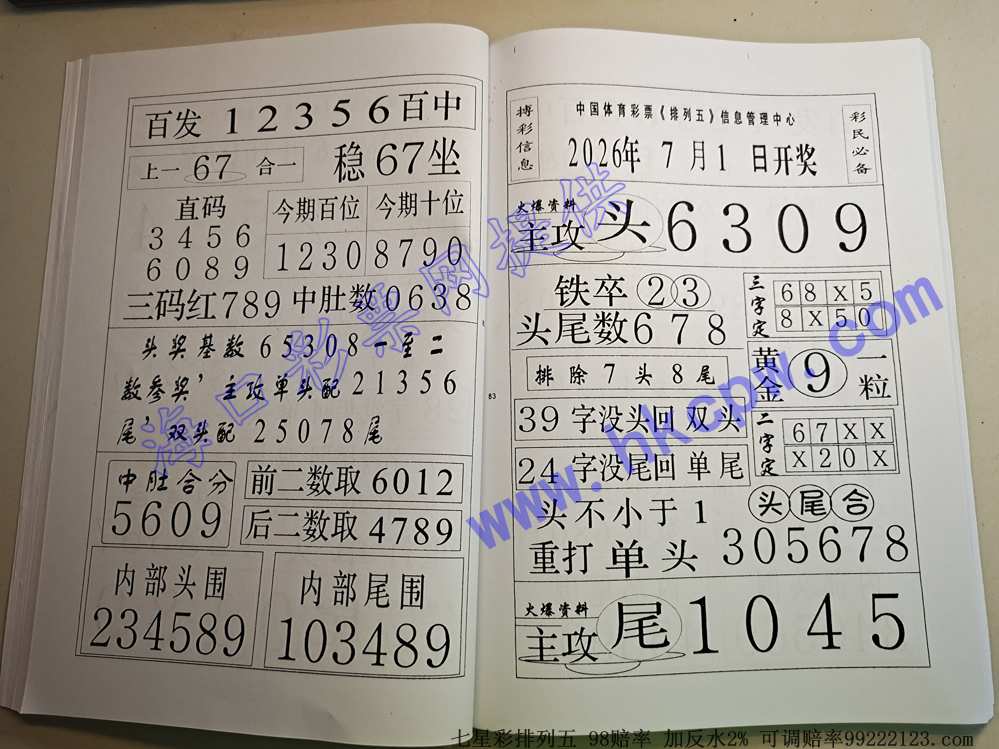 百发 12356 百中
上一 67 合一 稳 67 坐
直码
3456
6089
今期百位 今期十位
12308 8790
三码红 789 中肚数 0638
头奖基数 65308 一至二
数参奖，主攻单头配 21356
尾，双头配 25078 尾
中肚合分
5609
前二数取 6012
后二数取 4789
内部头围
234589
内部尾围
103489
83
搏彩信息
中国体育彩票《排列五》信息管理中心
2026年 7 月 1 日开奖
彩民必备
火爆资料
主攻 头 6309
铁卒 ②③
头尾数 678
三字定
68X5
8X50
排除 7 头 8 尾
黄金 ⑨ 一粒
39 字没头回 双头
24 字没尾回 单尾
二字定
67XX
X20X
头不小于 1
重打 单头
头尾合
305678
火爆资料
主攻 尾 1045
海口彩票网提供
www.hkcpw.com
七星彩排列五 98赔率 加反水2% 可调赔率99222123.com